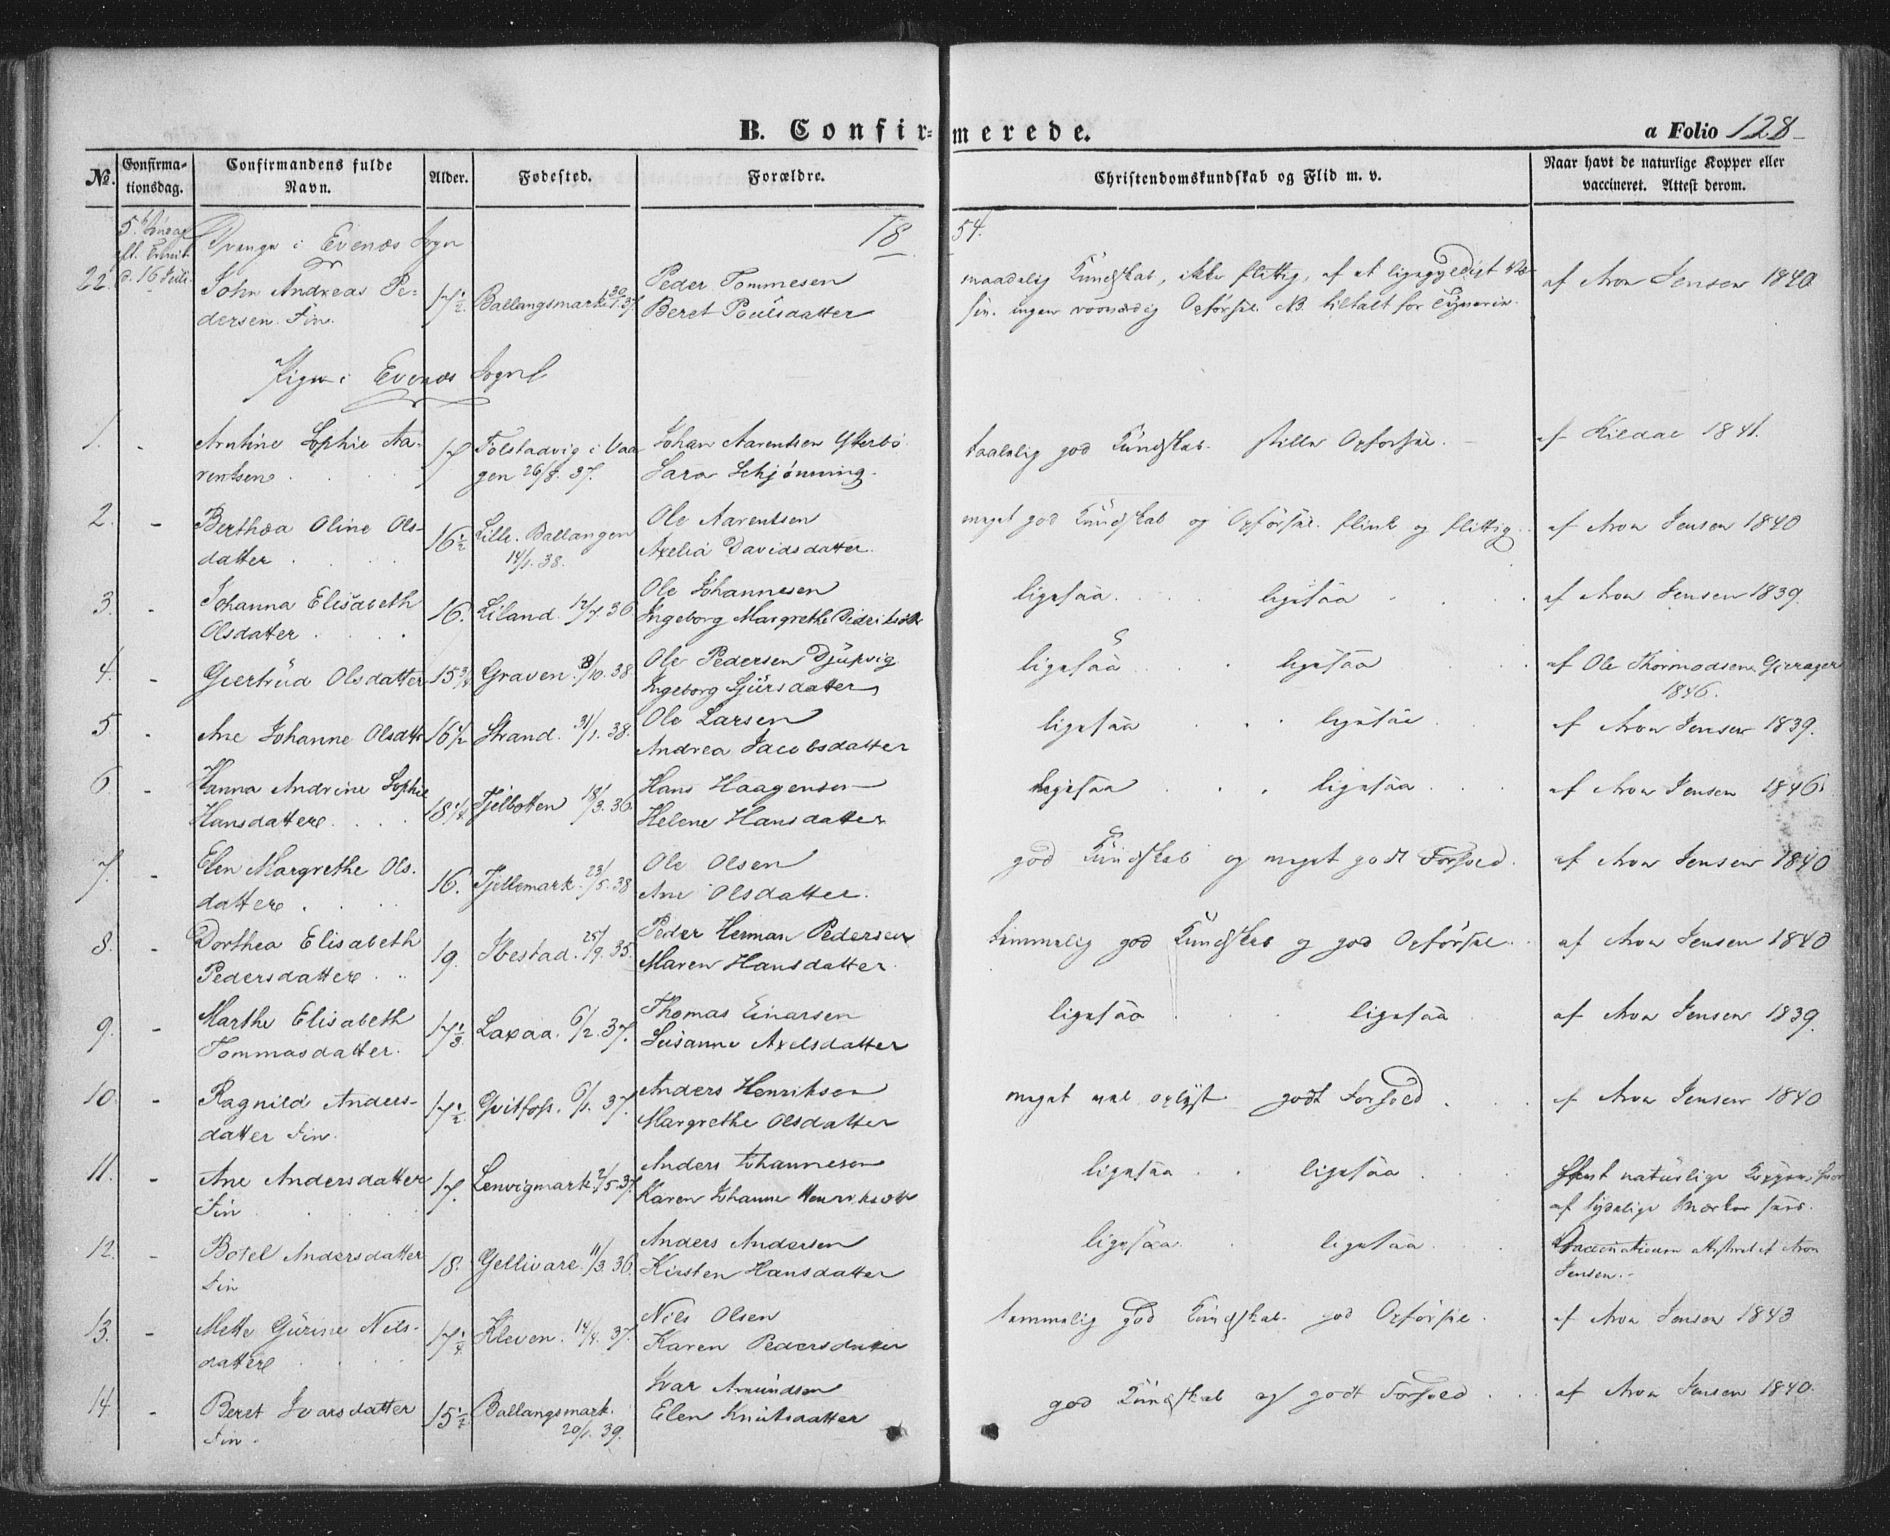 B. Confirmerede.
a Folio 128
№ Confirmationsdag. Confirmandens fulde Navn. Alder. Fødested. Forældre. Christendomskundskab og Flid m. v. Naar havt de naturlige Kopper eller vaccineret. Attest derom.
5. Søndag
d. 16 Juli
Drenge i Evenæs Sogn
18 54.
22. John Andreas Pe- 17½ Ballangsmark 30/1 37. Peder Tommesen maadelig Kundskab, ikke flittig, af et ligegyldigt Væ- af Aron Jensen 1840
dersen. Fin. Beret Poulsdatter sen. ingen Opførsel. NB.
Piger i Evenæs Sogn
1. - Arntine Sophie Aa- 17 Tolstadvig i Vaa- Johan Aarentsen Ytterbø taalelig god Kundskab. stille Opførsel. af Kildal 1841.
rentsen gen 26/8. 37. Sara Schjønning.
2. - Berthea Oline Ols- 16½ Lille. Ballangen Ole Aarentsen meget god Kundskab og Opførsel. flink og flittig. af Aron Jensen 1840
datter 14/1. 38. Axelia Davidsdatter.
3. - Johanna Elisabeth 16. Liland. 12/7 36 Ole Johannesen ligesaa ligesaa af Aron Jensen 1839.
Olsdatter Ingeborg Margrethe
4. - Giertrud Olsdatter 15¾ Graven 8/10. 38 Ole Pedersen Djupvig ligesaa ligesaa af Ole Thormodsen Gjerager
Ingeborg Sjursdatter 1846.
5 - Ane Johanne Olsdtr 16½ Strand. 31/1. 38. Ole Larsen ligesaa ligesaa af Aron Jensen 1839.
Andrea Jacobsdatter
6 - Hanna Andrine Sophie 18¼ Tjelbotten 18/3. 36 Hans Haagensen ligesaa ligesaa af Aron Jensen 1846
Hansdatter Helene Hansdatter
7. - Elen Margrethe Ols- 16. Tjellemark. 23/5. 38 Ole Olsen god Kundskab og meget godt Forhold. af Aron Jensen 1840
datter Ane Olsdatter.
8. - Dorthea Elisabeth 19. Ibestad. 25/9. 35. Peder Herman Pedersen temmelig god Kundskab og god Opførsel. af Aron Jensen 1840
Pedersdatter Maren Hansdatter
9. - Marthe Elisabeth 17⅓ Laxaa. 6/2. 37. Thomas Einarsen ligesaa ligesaa af Aron Jensen 1839.
Tommasdatter. Susanne Axelsdatter
10. - Ragnild Anders- 17½ Qvitfoss. 6/1. 37. Anders Henriksen meget vel oplyst godt Forhold. af Aron Jensen 1840
datter Fin. Margrethe Olsdatter
11. - Ane Andersdatter 17. Lenvigmark. 2/5. 37. Anders Johannesen ligesaa ligesaa havt naturlige Kopper, hvor-
Fin Karen Johanne Henriksdtr af tydelige Mærker sees.
12. - Botel Andersdatter 18. Gellivare. 11/3. 36. Anders Andersen ligesaa ligesaa Vaccinationen attesteret af Aron
Fin Kirsten Hansdatter Jensen.
13. - Mette Gurine Nils- 17¼ Kleven. 14/4. 37. Nils Olsen temmelig god Kundskab. god Opførsel. af Aron Jensen 1843
datter Karen Pedersdatter
14. - Beret Ivarsdatter 15½ Ballangsmark. Ivar Amundsen god Kundskab og godt Forhold af Aron Jensen 1840.
Fin. 20/1. 39. Elen Knutsdatter